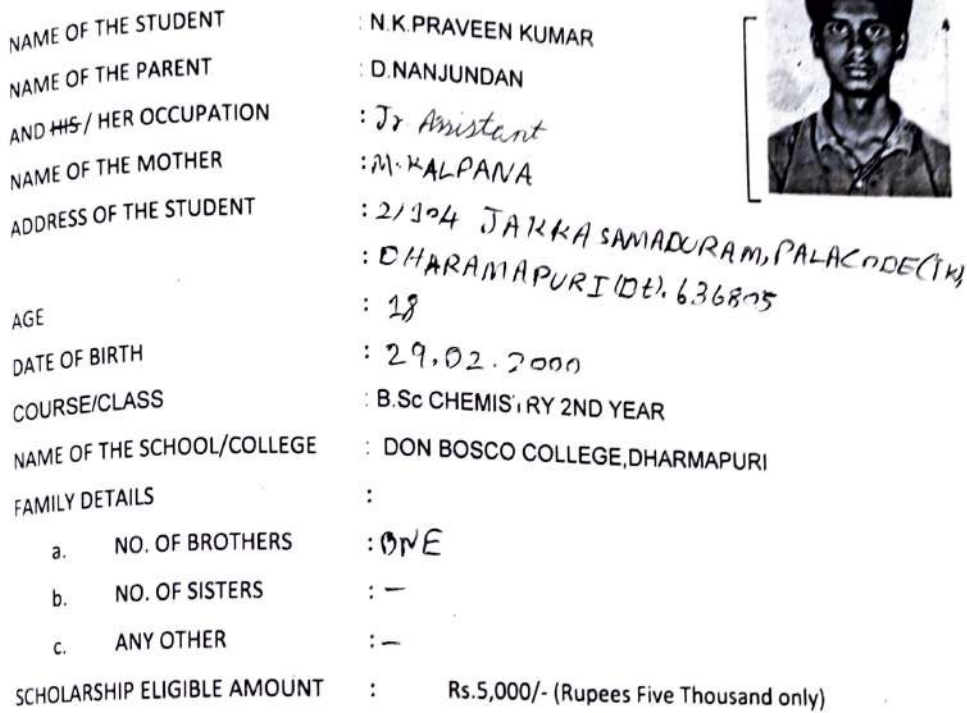 NAME OF THE STUDENT : N.K.PRAVEEN KUMAR
NAME OF THE PARENT : D.NANJUNDAN
AND HIS / HER OCCUPATION : Jr Assistant
NAME OF THE MOTHER : M.KALPANA
ADDRESS OF THE STUDENT : 2/104 JAKKASAMADURAM, PALACODE(TK),
: DHARAMAPURI(Dt). 636805
AGE : 18
DATE OF BIRTH : 29.02.2000
COURSE/CLASS : B.Sc CHEMISTRY 2ND YEAR
NAME OF THE SCHOOL/COLLEGE : DON BOSCO COLLEGE,DHARMAPURI
FAMILY DETAILS :
a. NO. OF BROTHERS : ONE
b. NO. OF SISTERS : —
c. ANY OTHER : —
SCHOLARSHIP ELIGIBLE AMOUNT : Rs.5,000/- (Rupees Five Thousand only)